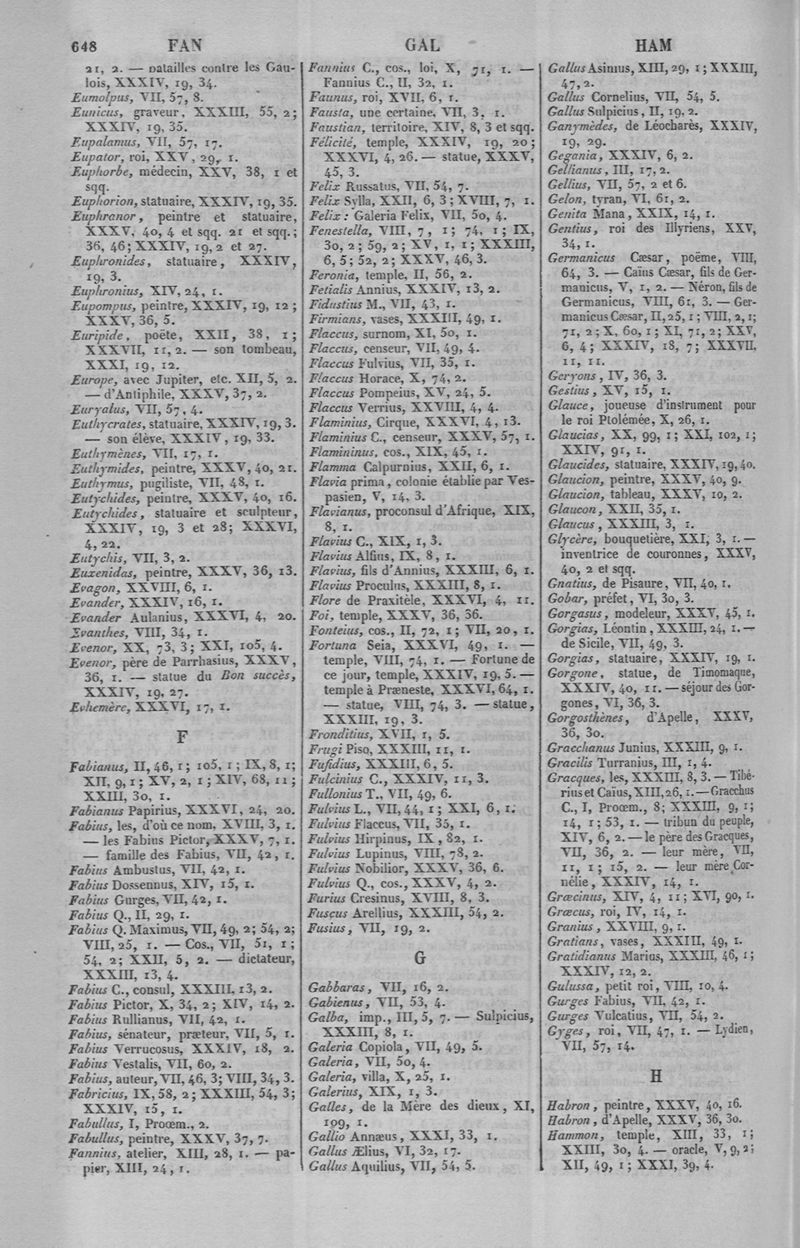 648 FAN GAL HAM
21, 2. — Batailles contre les Gau-
lois, XXXIV, 19, 34.
Eumolpus, VII, 57, 8.
Eunicus, graveur, XXXIII, 55, 2;
XXXIV, 19, 35.
Eupalamus, VII, 57, 17.
Eupator, roi, XXV, 29, 1.
Euphorbe, médecin, XXV, 38, 1 et
sqq.
Euphorion, statuaire, XXXIV, 19, 35.
Euphranor, peintre et statuaire,
XXXV, 40, 4 et sqq. 21 et sqq.;
36, 46; XXXIV, 19, 2 et 27.
Euphronides, statuaire, XXXIV,
19, 3.
Euphronius, XIV, 24, 1.
Eupompus, peintre, XXXIV, 19, 12;
XXXV, 36, 5.
Euripide, poëte, XXII, 38, 1;
XXXVII, 11, 2. — son tombeau,
XXXI, 19, 12.
Europe, avec Jupiter, etc. XII, 5, 2.
— d'Antiphile, XXXV, 37, 2.
Euryalus, VII, 57, 4.
Euthycrates, statuaire, XXXIV, 19, 3.
— son élève, XXXIV, 19, 33.
Euthymènes, VII, 17, 1.
Euthymides, peintre, XXXV, 40, 21.
Euthymus, pugiliste, VII, 48, 1.
Eutychides, peintre, XXXV, 40, 16.
Eutychides, statuaire et sculpteur,
XXXIV, 19, 3 et 28; XXXVI,
4, 22.
Eutychis, VII, 3, 2.
Euxenidas, peintre, XXXV, 36, 13.
Evagon, XXVIII, 6, 1.
Evander, XXXIV, 16, 1.
Evander Aulanius, XXXVI, 4, 20.
Evanthes, VIII, 34, 1.
Evenor, XX, 73, 3; XXI, 105, 4.
Evenor, père de Parrhasius, XXXV,
36, 1. — statue du Bon succès,
XXXIV, 19, 27.
Evhemère, XXXVI, 17, 1.
F
Fabianus, II, 46, 1; 105, 1; IX, 8, 1;
XII, 9, 1; XV, 2, 1; XIV, 68, 11;
XXIII, 30, 1.
Fabianus Papirius, XXXVI, 24, 20.
Fabius, les, d'où ce nom, XVIII, 3, 1.
— les Fabius Pictor, XXXV, 7, 1.
— famille des Fabius, VII, 42, 1.
Fabius Ambustus, VII, 42, 1.
Fabius Dossennus, XIV, 15, 1.
Fabius Gurges, VII, 42, 1.
Fabius Q., II, 29, 1.
Fabius Q. Maximus, VII, 49, 2; 54, 2;
VIII, 25, 1. — Cos., VII, 51, 1;
54, 2; XXII, 5, 2. — dictateur,
XXXIII, 13, 4.
Fabius C., consul, XXXIII, 13, 2.
Fabius Pictor, X, 34, 2; XIV, 14, 2.
Fabius Rullianus, VII, 42, 1.
Fabius, sénateur, præteur, VII, 5, 1.
Fabius Verrucosus, XXXIV, 18, 2.
Fabius Vestalis, VII, 60, 2.
Fabius, auteur, VII, 46, 3; VIII, 34, 3.
Fabricius, IX, 58, 2; XXXIII, 54, 3;
XXXIV, 15, 1.
Fabullus, I, Proœm., 2.
Fabullus, peintre, XXXV, 37, 7.
Fannius, atelier, XIII, 28, 1. — pa-
pier, XIII, 24, 1.
Fannius C., cos., loi, X, 71, 1. —
Fannius C., II, 32, 1.
Faunus, roi, XVII, 6, 1.
Fausta, une certaine, VII, 3, 1.
Faustian, territoire, XIV, 8, 3 et sqq.
Félicité, temple, XXXIV, 19, 20;
XXXVI, 4, 26. — statue, XXXV,
45, 3.
Felix Russatus, VII, 54, 7.
Felix Sylla, XXII, 6, 3; XVIII, 7, 1.
Felix: Galeria Felix, VII, 50, 4.
Fenestella, VIII, 7, 1; 74, 1; IX,
30, 2; 59, 2; XV, 1, 1; XXXIII,
6, 5; 52, 2; XXXV, 46, 3.
Feronia, temple, II, 56, 2.
Fetialis Annius, XXXIV, 13, 2.
Fidustius M., VII, 43, 1.
Firmians, vases, XXXIII, 49, 1.
Flaccus, surnom, XI, 50, 1.
Flaccus, censeur, VII, 49, 4.
Flaccus Fulvius, VII, 35, 1.
Flaccus Horace, X, 74, 2.
Flaccus Pompeius, XV, 24, 5.
Flaccus Verrius, XXVIII, 4, 4.
Flaminius, Cirque, XXXVI, 4, 13.
Flaminius C., censeur, XXXV, 57, 1.
Flamininus, cos., XIX, 45, 1.
Flamma Calpurnius, XXII, 6, 1.
Flavia prima, colonie établie par Ves-
pasien, V, 14, 3.
Flavianus, proconsul d'Afrique, XIX,
8, 1.
Flavius C., XIX, 1, 3.
Flavius Alfius, IX, 8, 1.
Flavius, fils d'Annius, XXXIII, 6, 1.
Flavius Proculus, XXXIII, 8, 1.
Flore de Praxitèle, XXXVI, 4, 11.
Foi, temple, XXXV, 36, 36.
Fonteius, cos., II, 72, 1; VII, 20, 1.
Fortuna Seia, XXXVI, 49, 1. —
temple, VIII, 74, 1. — Fortune de
ce jour, temple, XXXIV, 19, 5. —
temple à Præneste, XXXVI, 64, 1.
— statue, VIII, 74, 3. — statue,
XXXIII, 19, 3.
Fronditius, XVII, 1, 5.
Frugi Piso, XXXIII, 11, 1.
Fufidius, XXXIII, 6, 5.
Fulcinius C., XXXIV, 11, 3.
Fullonius T., VII, 49, 6.
Fulvius L., VII, 44, 1; XXI, 6, 1.
Fulvius Flaccus, VII, 35, 1.
Fulvius Hirpinus, IX, 82, 1.
Fulvius Lupinus, VIII, 78, 2.
Fulvius Nobilior, XXXV, 36, 6.
Fulvius Q., cos., XXXV, 4, 2.
Furius Cresinus, XVIII, 8, 3.
Fuscus Arellius, XXXIII, 54, 2.
Fusius, VII, 19, 2.
G
Gabbaras, VII, 16, 2.
Gabienus, VII, 53, 4.
Galba, imp., III, 5, 7. — Sulpicius,
XXXIII, 8, 1.
Galeria Copiola, VII, 49, 5.
Galeria, VII, 50, 4.
Galeria, villa, X, 25, 1.
Galerius, XIX, 1, 3.
Galles, de la Mère des dieux, XI,
109, 1.
Gallio Annæus, XXXI, 33, 1.
Gallus Ælius, VI, 32, 17.
Gallus Aquilius, VII, 54, 5.
Gallus Asinius, XIII, 29, 1; XXXIII,
47, 2.
Gallus Cornelius, VII, 54, 5.
Gallus Sulpicius, II, 19, 2.
Ganymèdes, de Léocharès, XXXIV,
19, 29.
Gegania, XXXIV, 6, 2.
Gellianus, III, 17, 2.
Gellius, VII, 57, 2 et 6.
Gelon, tyran, VI, 61, 2.
Genita Mana, XXIX, 14, 1.
Gentius, roi des Illyriens, XXV,
34, 1.
Germanicus Cæsar, poëme, VIII,
64, 3. — Caïus Cæsar, fils de Ger-
manicus, V, 1, 2. — Néron, fils de
Germanicus, VIII, 61, 3. — Ger-
manicus Cæsar, II, 25, 1; VIII, 2, 1;
71, 2; X, 60, 1; XI, 71, 2; XXV,
6, 4; XXXIV, 18, 7; XXXVII,
11, 11.
Geryons, IV, 36, 3.
Gestius, XV, 15, 1.
Glauce, joueuse d'instrument pour
le roi Ptolémée, X, 26, 1.
Glaucias, XX, 99, 1; XXI, 102, 1;
XXIV, 91, 1.
Glaucides, statuaire, XXXIV, 19, 40.
Glaucion, peintre, XXXV, 40, 9.
Glaucion, tableau, XXXV, 10, 2.
Glaucon, XXII, 35, 1.
Glaucus, XXXIII, 3, 1.
Glycère, bouquetière, XXI, 3, 1. —
inventrice de couronnes, XXXV,
40, 2 et sqq.
Gnatius, de Pisaure, VII, 40, 1.
Gobar, préfet, VI, 30, 3.
Gorgasus, modeleur, XXXV, 45, 1.
Gorgias, Léontin, XXXIII, 24, 1. —
de Sicile, VII, 49, 3.
Gorgias, statuaire, XXXIV, 19, 1.
Gorgone, statue, de Timomaque,
XXXIV, 40, 11. — séjour des Gor-
gones, VI, 36, 3.
Gorgosthènes, d'Apelle, XXXV,
36, 30.
Gracchanus Junius, XXXIII, 9, 1.
Gracilis Turranius, III, 1, 4.
Gracques, les, XXXIII, 8, 3. — Tibé-
rius et Caïus, XIII, 26, 1. — Gracchus
C., I, Proœm., 8; XXXIII, 9, 1;
14, 1; 53, 1. — tribun du peuple,
XIV, 6, 2. — le père des Gracques,
VII, 36, 2. — leur mère, VII,
11, 1; 15, 2. — leur mère Cor-
nélie, XXXIV, 14, 1.
Græcinus, XIV, 4, 11; XVI, 90, 1.
Græcus, roi, IV, 14, 1.
Granius, XXVIII, 9, 1.
Gratians, vases, XXXIII, 49, 1.
Gratidianus Marius, XXXIII, 46, 1;
XXXIV, 12, 2.
Gulussa, petit roi, VIII, 10, 4.
Gurges Fabius, VII, 42, 1.
Gurges Vulcatius, VII, 54, 2.
Gyges, roi, VII, 47, 1. — Lydien,
VII, 57, 14.
H
Habron, peintre, XXXV, 40, 16.
Habron, d'Apelle, XXXV, 36, 30.
Hammon, temple, XIII, 33, 1;
XXIII, 30, 4. — oracle, V, 9, 2;
XII, 49, 1; XXXI, 39, 4.